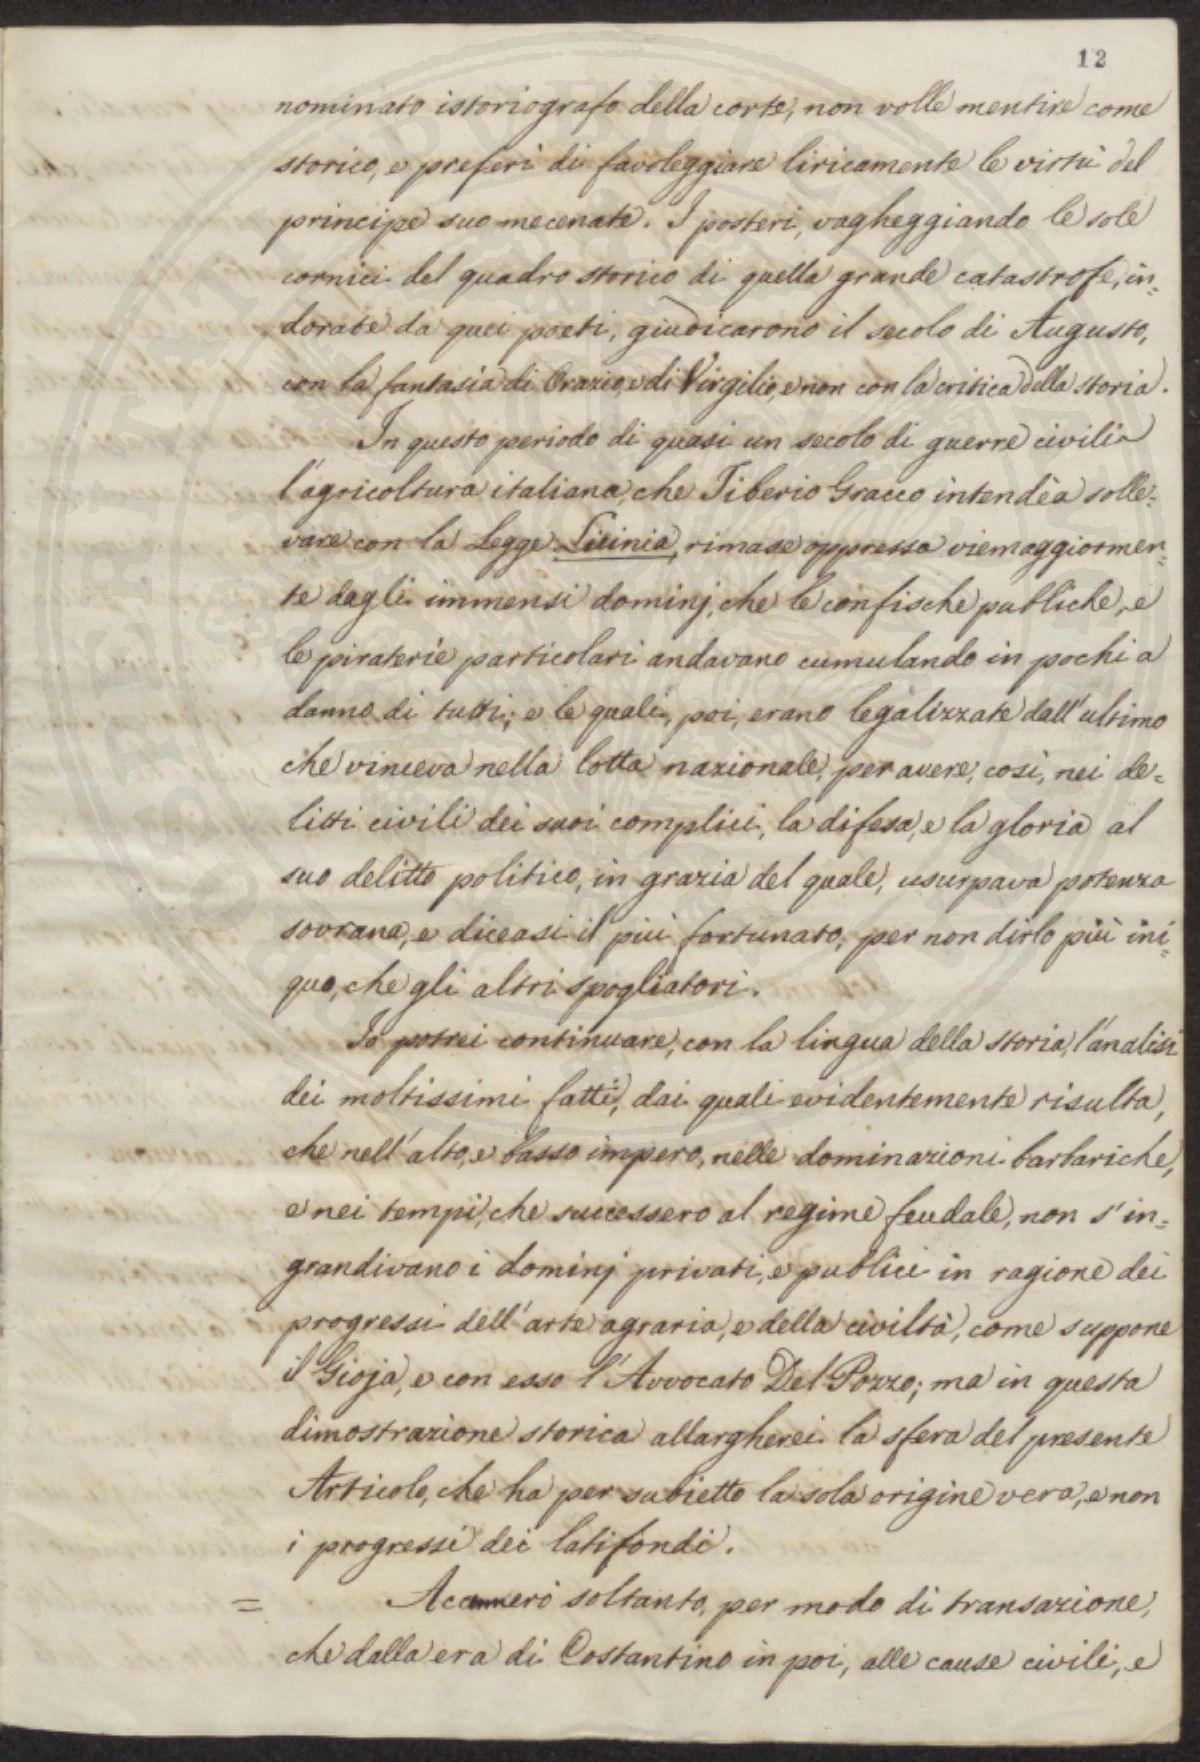 12
nominato istoriografo della corte, non volle mentire come
storico, e preferì di favoleggiare liricamente le virtù del
principe suo mecenate. I posteri, vagheggiando le sole
cornici del quadro storico di quella grande catastrofe, in=
dorate da quei poeti, giudicarono il secolo di Augusto,
con la fantasia di Orazio, e di Virgilio, e non con la critica della storia.
In questo periodo di quasi un secolo di guerre civili
l'agricoltura italiana, che Tiberio Gracco intendèa solle=
vare con la Legge Licinia, rimase oppressa viemaggiormen=
te dagli immensi dominj, che le confische publiche, e
le piraterie particolari andavano cumulando in pochi a
danno di tutti; e le quali, poi, erano legalizzate dall'ultimo
che vinceva nella lotta nazionale, per avere, così, nei de=
litti civili dei suoi complici, la difesa, e la gloria al
suo delitto politico, in grazia del quale, usurpava potenza
sovrana, e diceasi il più fortunato, per non dirlo più ini=
quo, che gli altri spogliatori.
Io potrei continuare, con la lingua della storia, l'analisi
dei moltissimi fatti, dai quali evidentemente risulta,
che nell'alto, e basso impero, nelle dominazioni barbariche,
e nei tempi, che successero al regime feudale, non s'in=
grandivano i dominj privati, e publici in ragione dei
progressi dell'arte agraria, e della civiltà, come suppone
il Gioja, e con esso l'Avvocato Del Pozzo; ma in questa
dimostrazione storica allargherei la sfera del presente
Articolo, che ha per subietto la sola origine vera, e non
i progressi dei latifondi.
= Accennerò soltanto, per modo di transazione,
che dalla era di Costantino in poi, alle cause civili, e